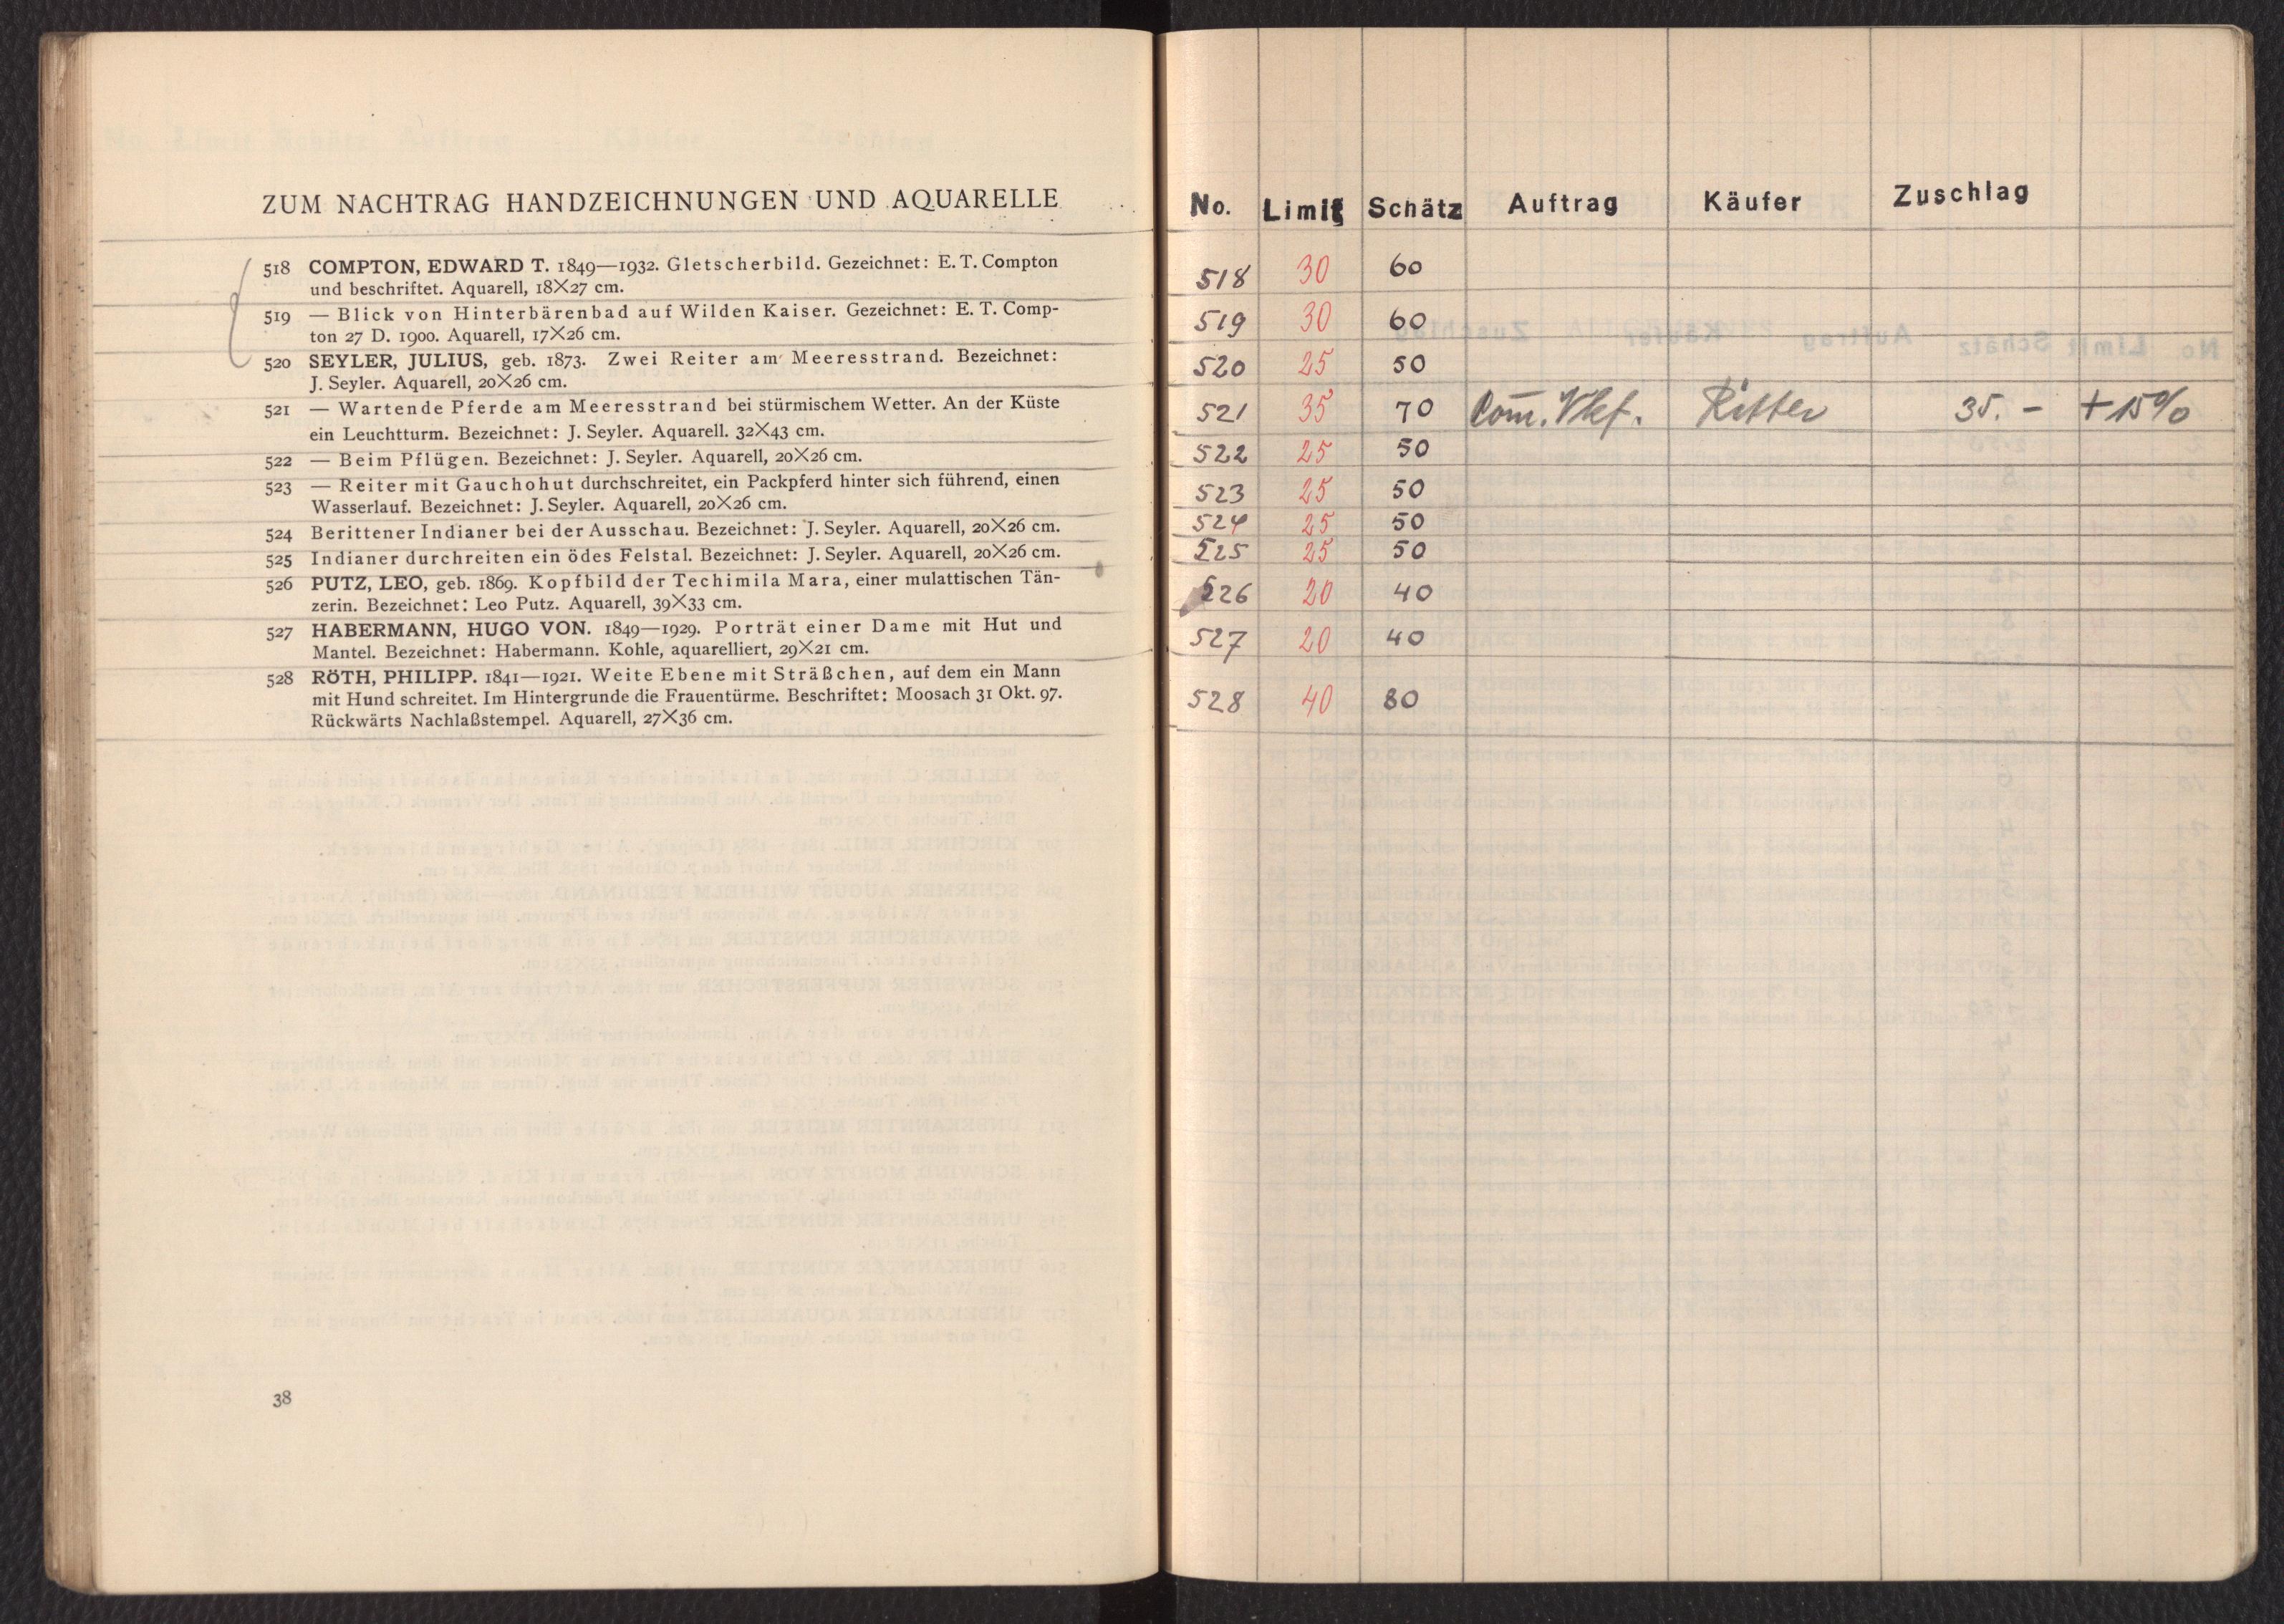 ZUM NACHTRAG HANDZEICHNUNGEN UND AQUARELLE
518 COMPTON, EDWARD T. 1849—1932. Gletscherbild. Gezeichnet: E. T. Compton
und beschriftet. Aquarell, 18×27 cm.
519 — Blick von Hinterbärenbad auf Wilden Kaiser. Gezeichnet: E. T. Comp-
ton 27 D. 1900. Aquarell, 17×26 cm.
520 SEYLER, JULIUS, geb. 1873. Zwei Reiter am Meeresstrand. Bezeichnet:
J. Seyler. Aquarell, 20×26 cm.
521 — Wartende Pferde am Meeresstrand bei stürmischem Wetter. An der Küste
ein Leuchtturm. Bezeichnet: J. Seyler. Aquarell. 32×43 cm.
522 — Beim Pflügen. Bezeichnet: J. Seyler. Aquarell, 20×26 cm.
523 — Reiter mit Gauchohut durchschreitet, ein Packpferd hinter sich führend, einen
Wasserlauf. Bezeichnet: J. Seyler. Aquarell, 20×26 cm.
524 Berittener Indianer bei der Ausschau. Bezeichnet: J. Seyler. Aquarell, 20×26 cm.
525 Indianer durchreiten ein ödes Felstal. Bezeichnet: J. Seyler. Aquarell, 20×26 cm.
526 PUTZ, LEO, geb. 1869. Kopfbild der Techimila Mara, einer mulattischen Tän-
zerin. Bezeichnet: Leo Putz. Aquarell, 39×33 cm.
527 HABERMANN, HUGO VON. 1849—1929. Porträt einer Dame mit Hut und
Mantel. Bezeichnet: Habermann. Kohle, aquarelliert, 29×21 cm.
528 RÖTH, PHILIPP. 1841—1921. Weite Ebene mit Sträßchen, auf dem ein Mann
mit Hund schreitet. Im Hintergrunde die Frauentürme. Beschriftet: Moosach 31 Okt. 97.
Rückwärts Nachlaßstempel. Aquarell, 27×36 cm.
38
No. Limit Schätz Auftrag Käufer Zuschlag
518 30 60
519 30 60
520 25 50
521 35 70 Ritter 35.- + 15%
522 25 50
523 25 50
524 25 50
525 25 50
526 20 40
527 20 40
528 40 80